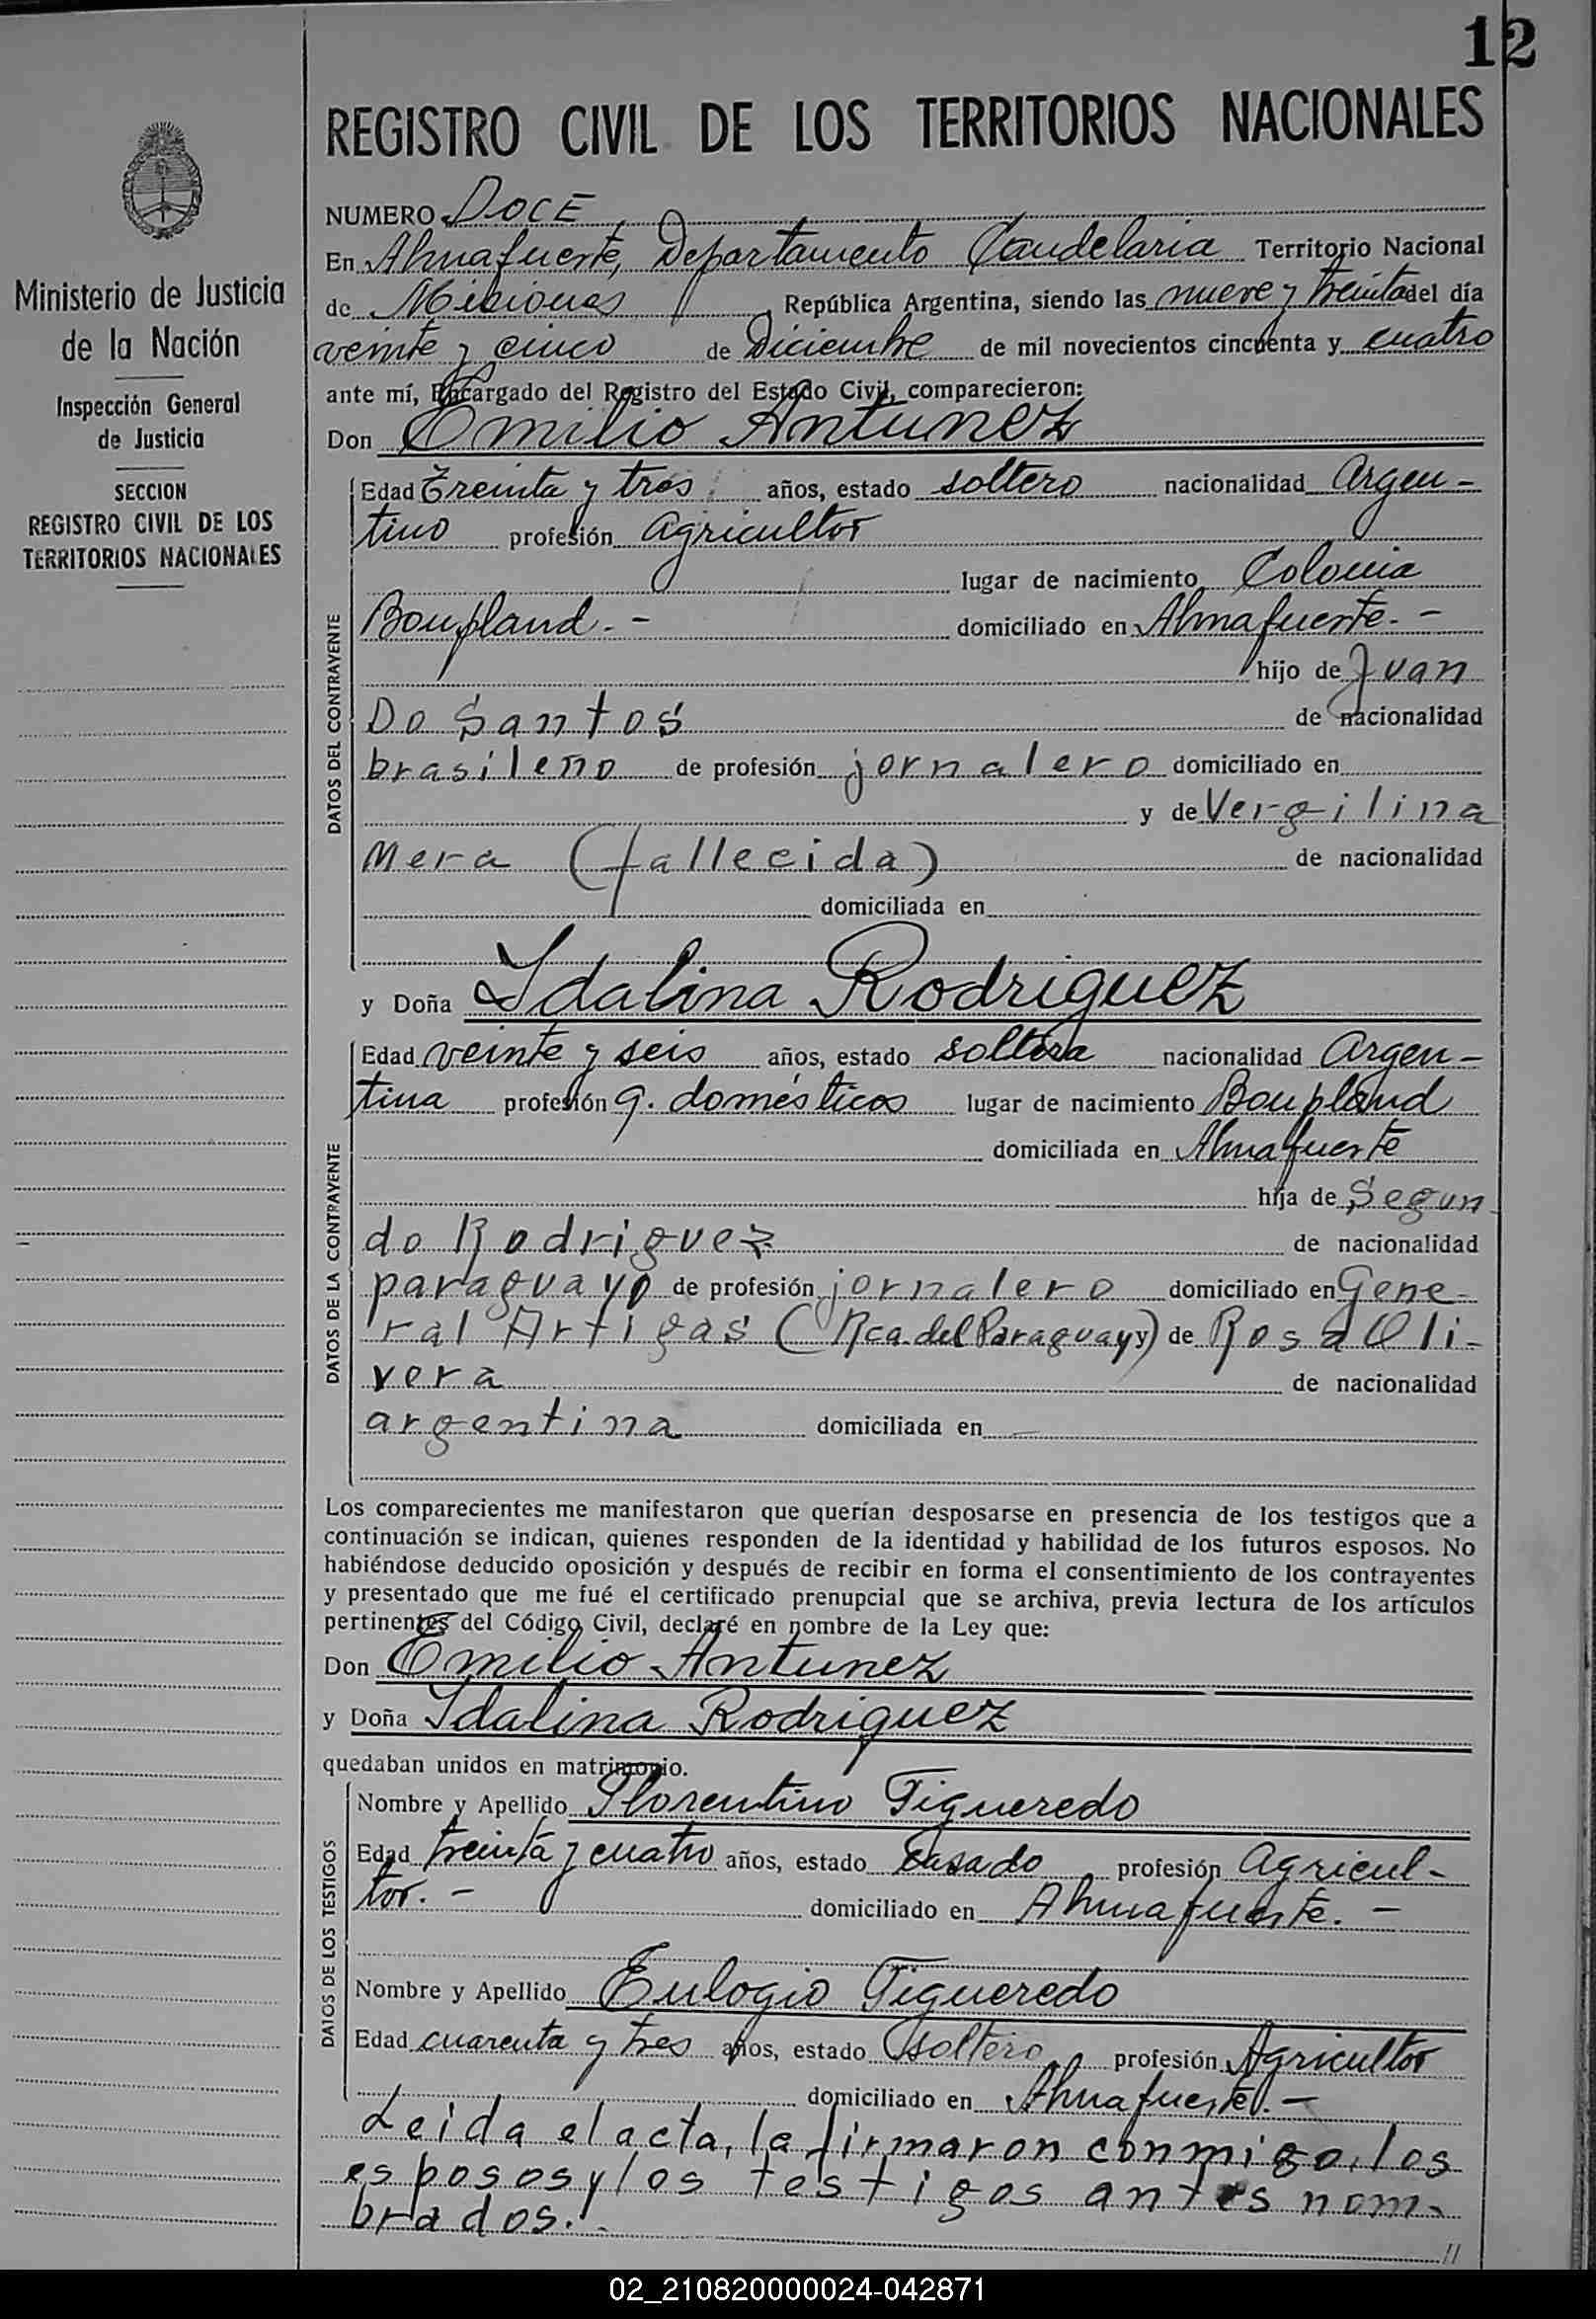 12
REGISTRO CIVIL DE LOS TERRITORIOS NACIONALES
Ministerio de Justicia
de la Nación
Inspección General
de Justicia
SECCION
REGISTRO CIVIL DE LOS
TERRITORIOS NACIONALES
NUMERO DOCE
En Almafuerte, Departamento Candelaria Territorio Nacional
de Misiones, República Argentina, siendo las nueve y treinta del día
veinte y cinco de Diciembre de mil novecientos cincuenta y cuatro
ante mí, Encargado del Registro del Estado Civil, comparecieron:
Don Emilio Antunez
DATOS DEL CONTRAYENTE
Edad Treinta y tres años, estado soltero nacionalidad Argen-
tino profesión Agricultor
lugar de nacimiento Colonia
Bonpland.- domiciliado en Almafuerte.-
hijo de Juan
Do Santos de nacionalidad
brasileño de profesión jornalero domiciliado en
y de Vergilina
Mera (fallecida) de nacionalidad
domiciliada en
y Doña Idalina Rodriguez
DATOS DE LA CONTRAYENTE
Edad veinte y seis años, estado soltera nacionalidad Argen-
tina profesión q. domésticos lugar de nacimiento Bonpland
domiciliada en Almafuerte
hija de Segun
do Rodriguez de nacionalidad
paraguayo de profesión jornalero domiciliado en Gene-
ral Artigas (Rca. del Paraguay) y de Rosa Oli-
vera de nacionalidad
argentina domiciliada en
Los comparecientes me manifestaron que querían desposarse en presencia de los testigos que a
continuación se indican, quienes responden de la identidad y habilidad de los futuros esposos. No
habiéndose deducido oposición y después de recibir en forma el consentimiento de los contrayentes
y presentado que me fué el certificado prenupcial que se archiva, previa lectura de los artículos
pertinentes del Código Civil, declaré en nombre de la Ley que:
Don Emilio Antunez
y Doña Idalina Rodriguez
quedaban unidos en matrimonio.
DATOS DE LOS TESTIGOS
Nombre y Apellido Florentino Figueredo
Edad treinta y cuatro años, estado casado profesión Agricul-
tor.- domiciliado en Almafuerte.-
Nombre y Apellido Eulogio Figueredo
Edad cuarenta y tres años, estado soltero profesión Agricultor
domiciliado en Almafuerte.-
Leida el acta, la firmaron conmigo, los
esposos y los testigos antes nom-
brados.
//
02_210820000024-042871